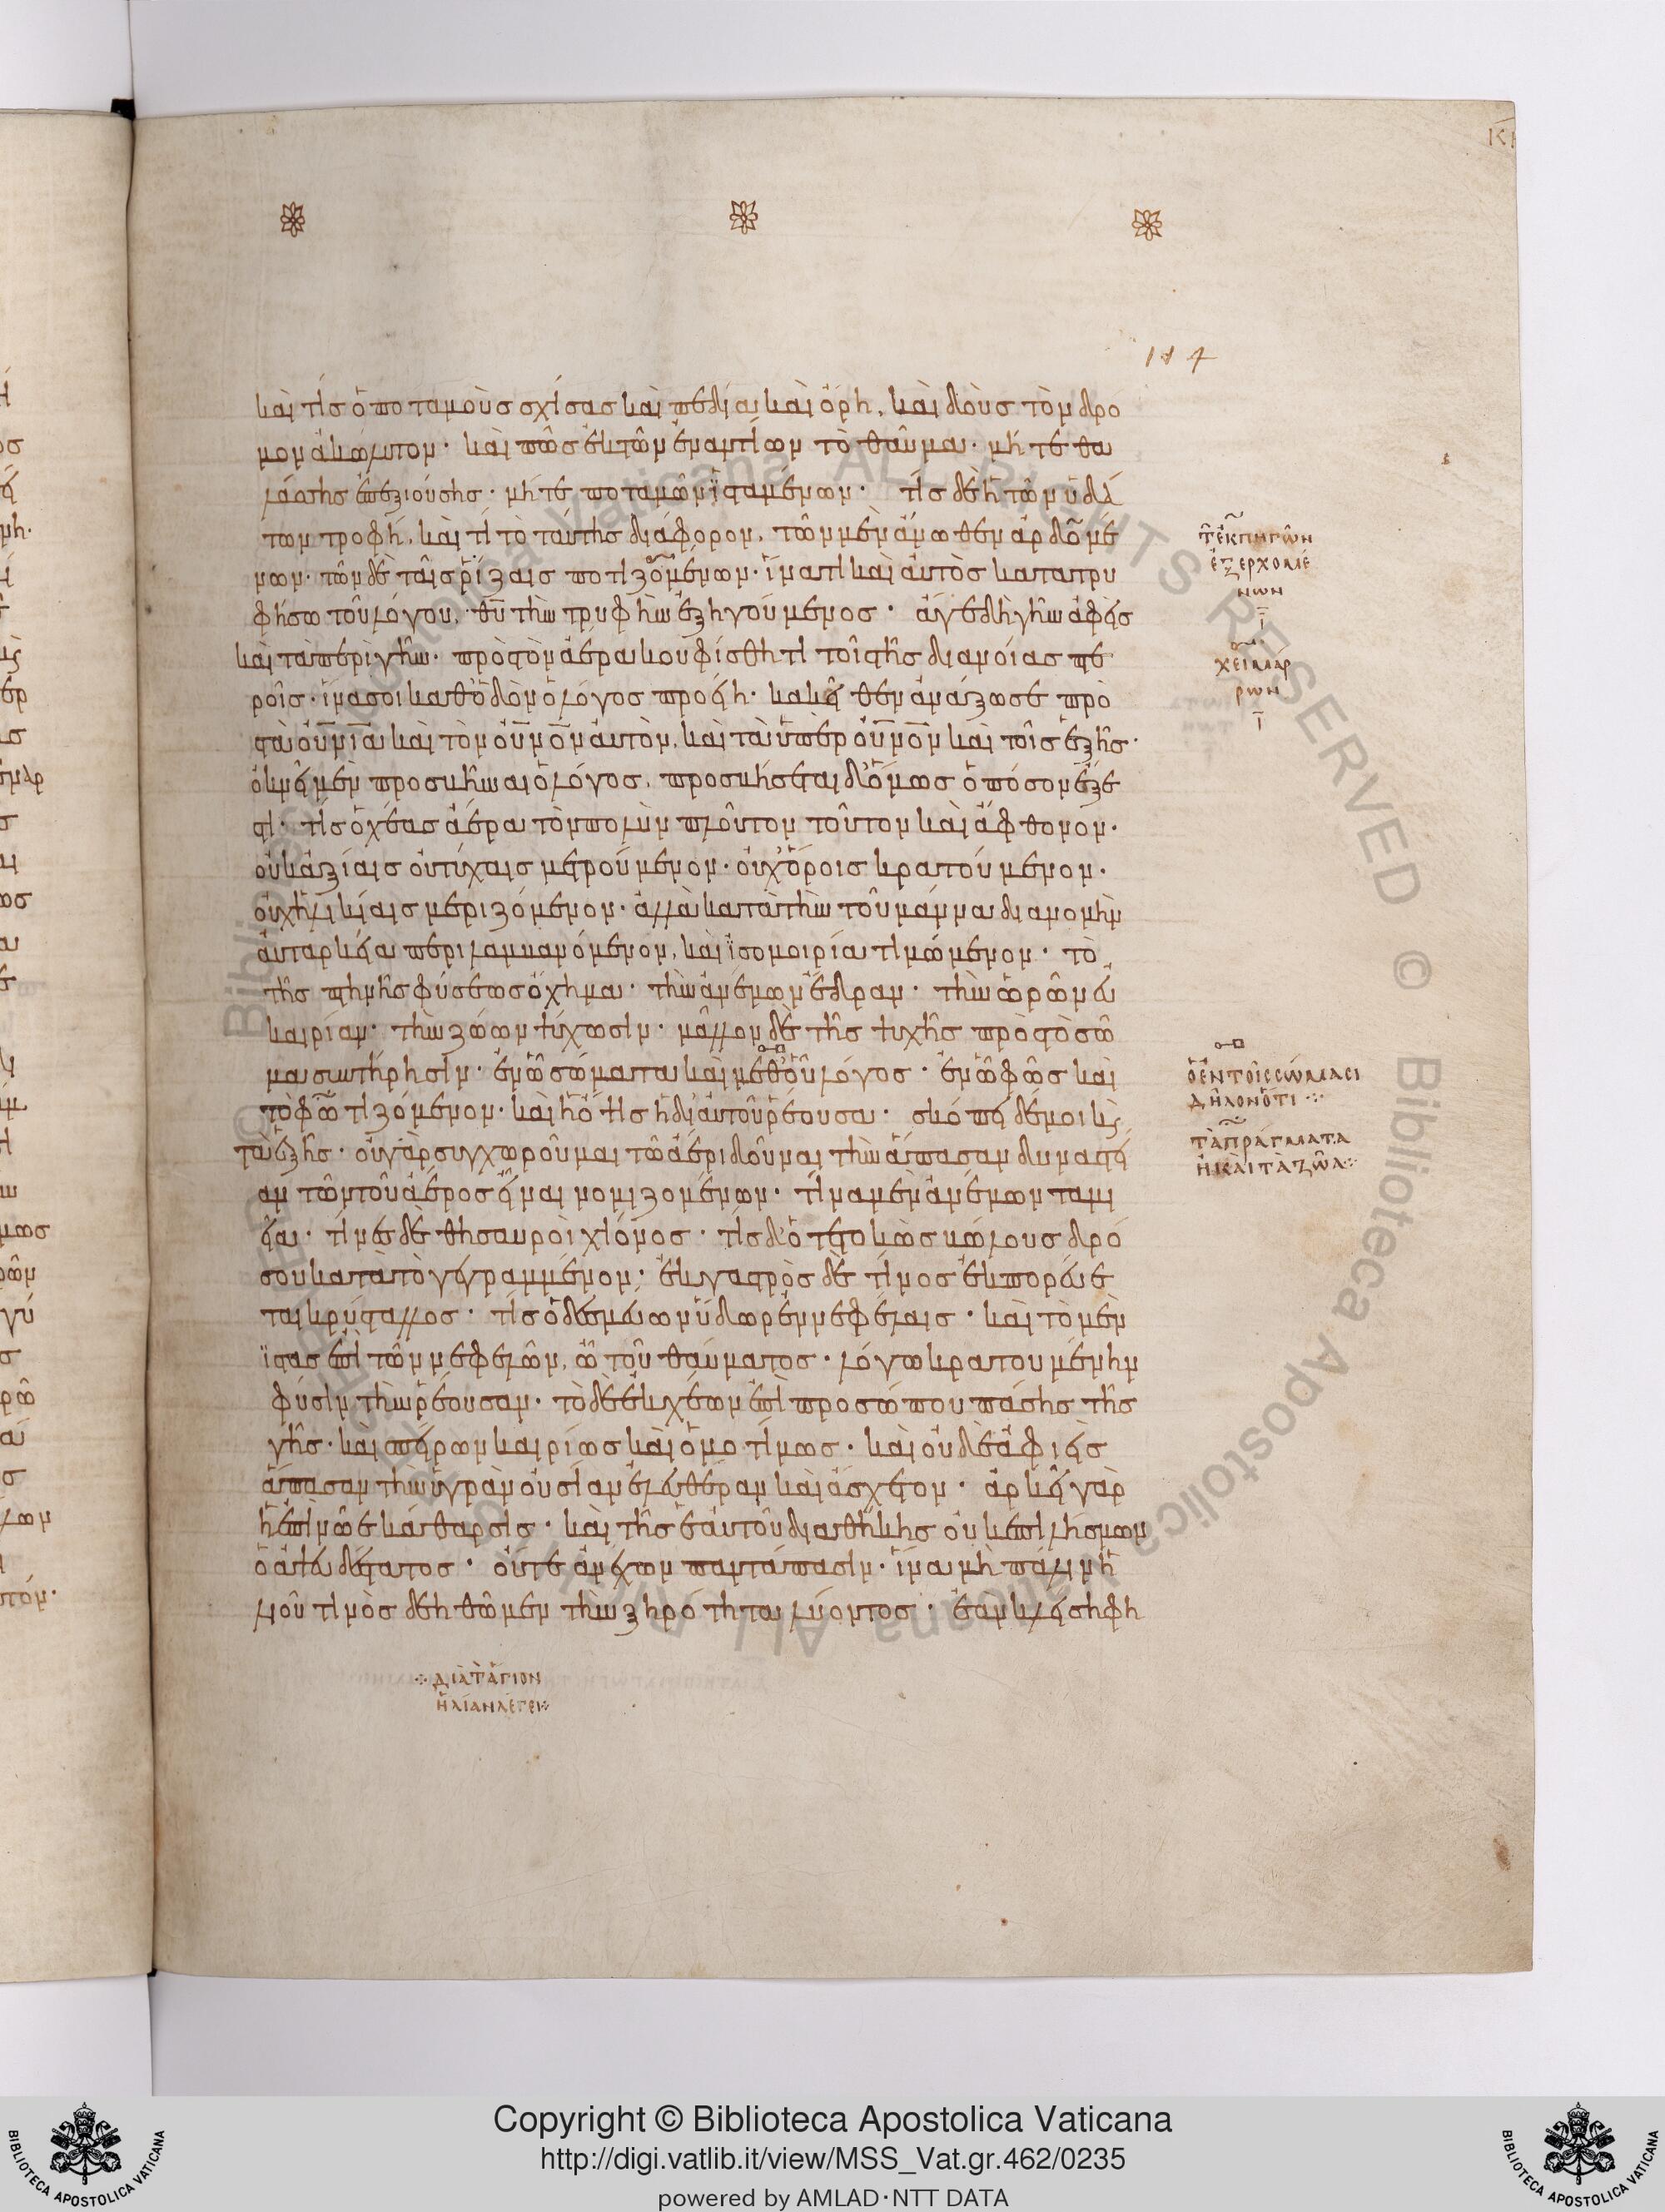 114
καὶ τίς ὁ ποταμοὺς σχίσας καὶ πεδία καὶ ὄρη, καὶ δοὺς τὸν δρό
μον ἀκώλυτον· καὶ πῶς ἐκ τῶν ἐναντίων τὸ θαῦμα· μήτε θα
λάσσης ἐπεξιούσης· μήτε ποταμῶν ἱσταμένων· τίς δὲ ἡ τῶν ὑδά
των τροφή, καὶ τί τὸ ταύτης διάφορον, τῶν μὲν ἄνωθεν ἀρδομέ
νων· τῶν δὲ ταῖς ῥίζαις ποτιζομένων· ἵνά τι καὶ αὐτὸς κατατρυ
φήσω τοῦ λόγου, θυ τὴν τρυφὴν ἐξηγούμενος· ἄγε δὴ γῆν ἀφεὶς
καὶ τὰ περὶ γῆν· πρὸς τὸν ἀέρα κουφίσθητι τοῖς τῆς διανοίας πτε
ροῖς· ἵνα σοι καθ' ὁδὸν ὁ λόγος προσίῃ· κακεῖθεν ἀνάξω σε πρὸς
τὰ οὐνια καὶ τὸν οὐνὸν αὐτὸν, καὶ τὰ ὑπὲρ οὐνὸν καὶ τοῖς ἑξῆς·
ὀκνεῖ μὲν προσβῆναι ὁ λόγος, προσβήσεται δ' ὅμως ὁπόσον ἔξε
στι· τίς ὁ χέας ἀέρα τὸν πολὺν πλοῦτον τοῦτον καὶ ἄφθονον·
οὐκ ἀξίαις οὐ τύχαις μετρούμενον· οὐχ ὅροις κρατούμενον·
οὐχ ἡλικίαις μεριζόμενον· ἀλλὰ κατὰ τὴν τοῦ μάννα διανομὴν
αὐταρκείᾳ περιλαμβανόμενον, καὶ ἰσομοιρίᾳ τιμώμενον· τὸ
τῆς πτηνῆς φύσεως ὄχημα· τὴν ἀνέμων ἕδραν· τὴν ὡρῶν εὐ
καιρίαν· τὴν ζώων ψύχωσιν· μᾶλλον δὲ τῆς ψυχῆς πρὸς τὸ σῶ
μα συντήρησιν· ἐν ᾧ σώματα καὶ μεθ' οὗ λόγος· ἐν ᾧ φῶς καὶ
τὸ φωτιζόμενον· καὶ ἡ ὄψις ἡ δι' αὐτοῦ ῥέουσα· σκόπει δέ μοι καὶ
τὰ ἑξῆς· οὐ γὰρ συγχωροῦμαι τῷ ἀέρι δοῦναι τὴν ἅπασαν δυναστεί
αν τῶν τοῦ ἀέρος εἶναι νομιζομένων· τίνα μὲν ἀνέμων ταμι
εῖα· τίνες δὲ θησαυροὶ χιόνος· τίς δ' ὁ τετοκὼς βώλους δρό
σου κατὰ τὸ γεγραμμένον· ἐκ γαστρὸς δὲ τίνος ἐκπορεύε
ται κρύσταλλος· τίς ὁ δεσμεύων ὕδωρ ἐν νεφέλαις· καὶ τὸ μὲν
ἱστὰς ἐπὶ τῶν νεφελῶν, ὢ τοῦ θαύματος· λόγῳ κρατουμένην
φύσιν τὴν ῥέουσαν· τὸ δὲ ἐκχέων ἐπὶ προσώπου πάσης τῆς
γῆς· καὶ σπείρων καιρίως καὶ ὁμοτίμως· καὶ οὐδὲ ἀφιεὶς
ἅπασαν τὴν ὑγρὰν οὐσίαν ἐλευθέραν καὶ ἄσχετον· ἀρκεῖ γὰρ
ἡ ἐπὶ νῶε κάθαρσις· καὶ τῆς ἑαυτοῦ διαθήκης οὐκ ἐπιλήσμων
ὁ ἀψευδέστατος· οὔτε ἀνέχων παντάπασιν· ἵνα μὴ πάλιν ἢ
λιοῦ τινὸς δεηθῶμεν τὴν ξηρότητα λύοντος· ἐὰν κλείσῃ φη
τ ἐκ πηγῶν
ἐξερχομέ
νων
χειμάρ
ρων
ὁ ἐν τοῖς σώμασι
δηλονότι
τὰ πράγματα
ἢ καὶ τὰ ζῶα
διὰ τ ἅγιον
ἡλίαν λέγει
Copyright © Biblioteca Apostolica Vaticana
http://digi.vatlib.it/view/MSS_Vat.gr.462/0235
powered by AMLAD·NTT DATA